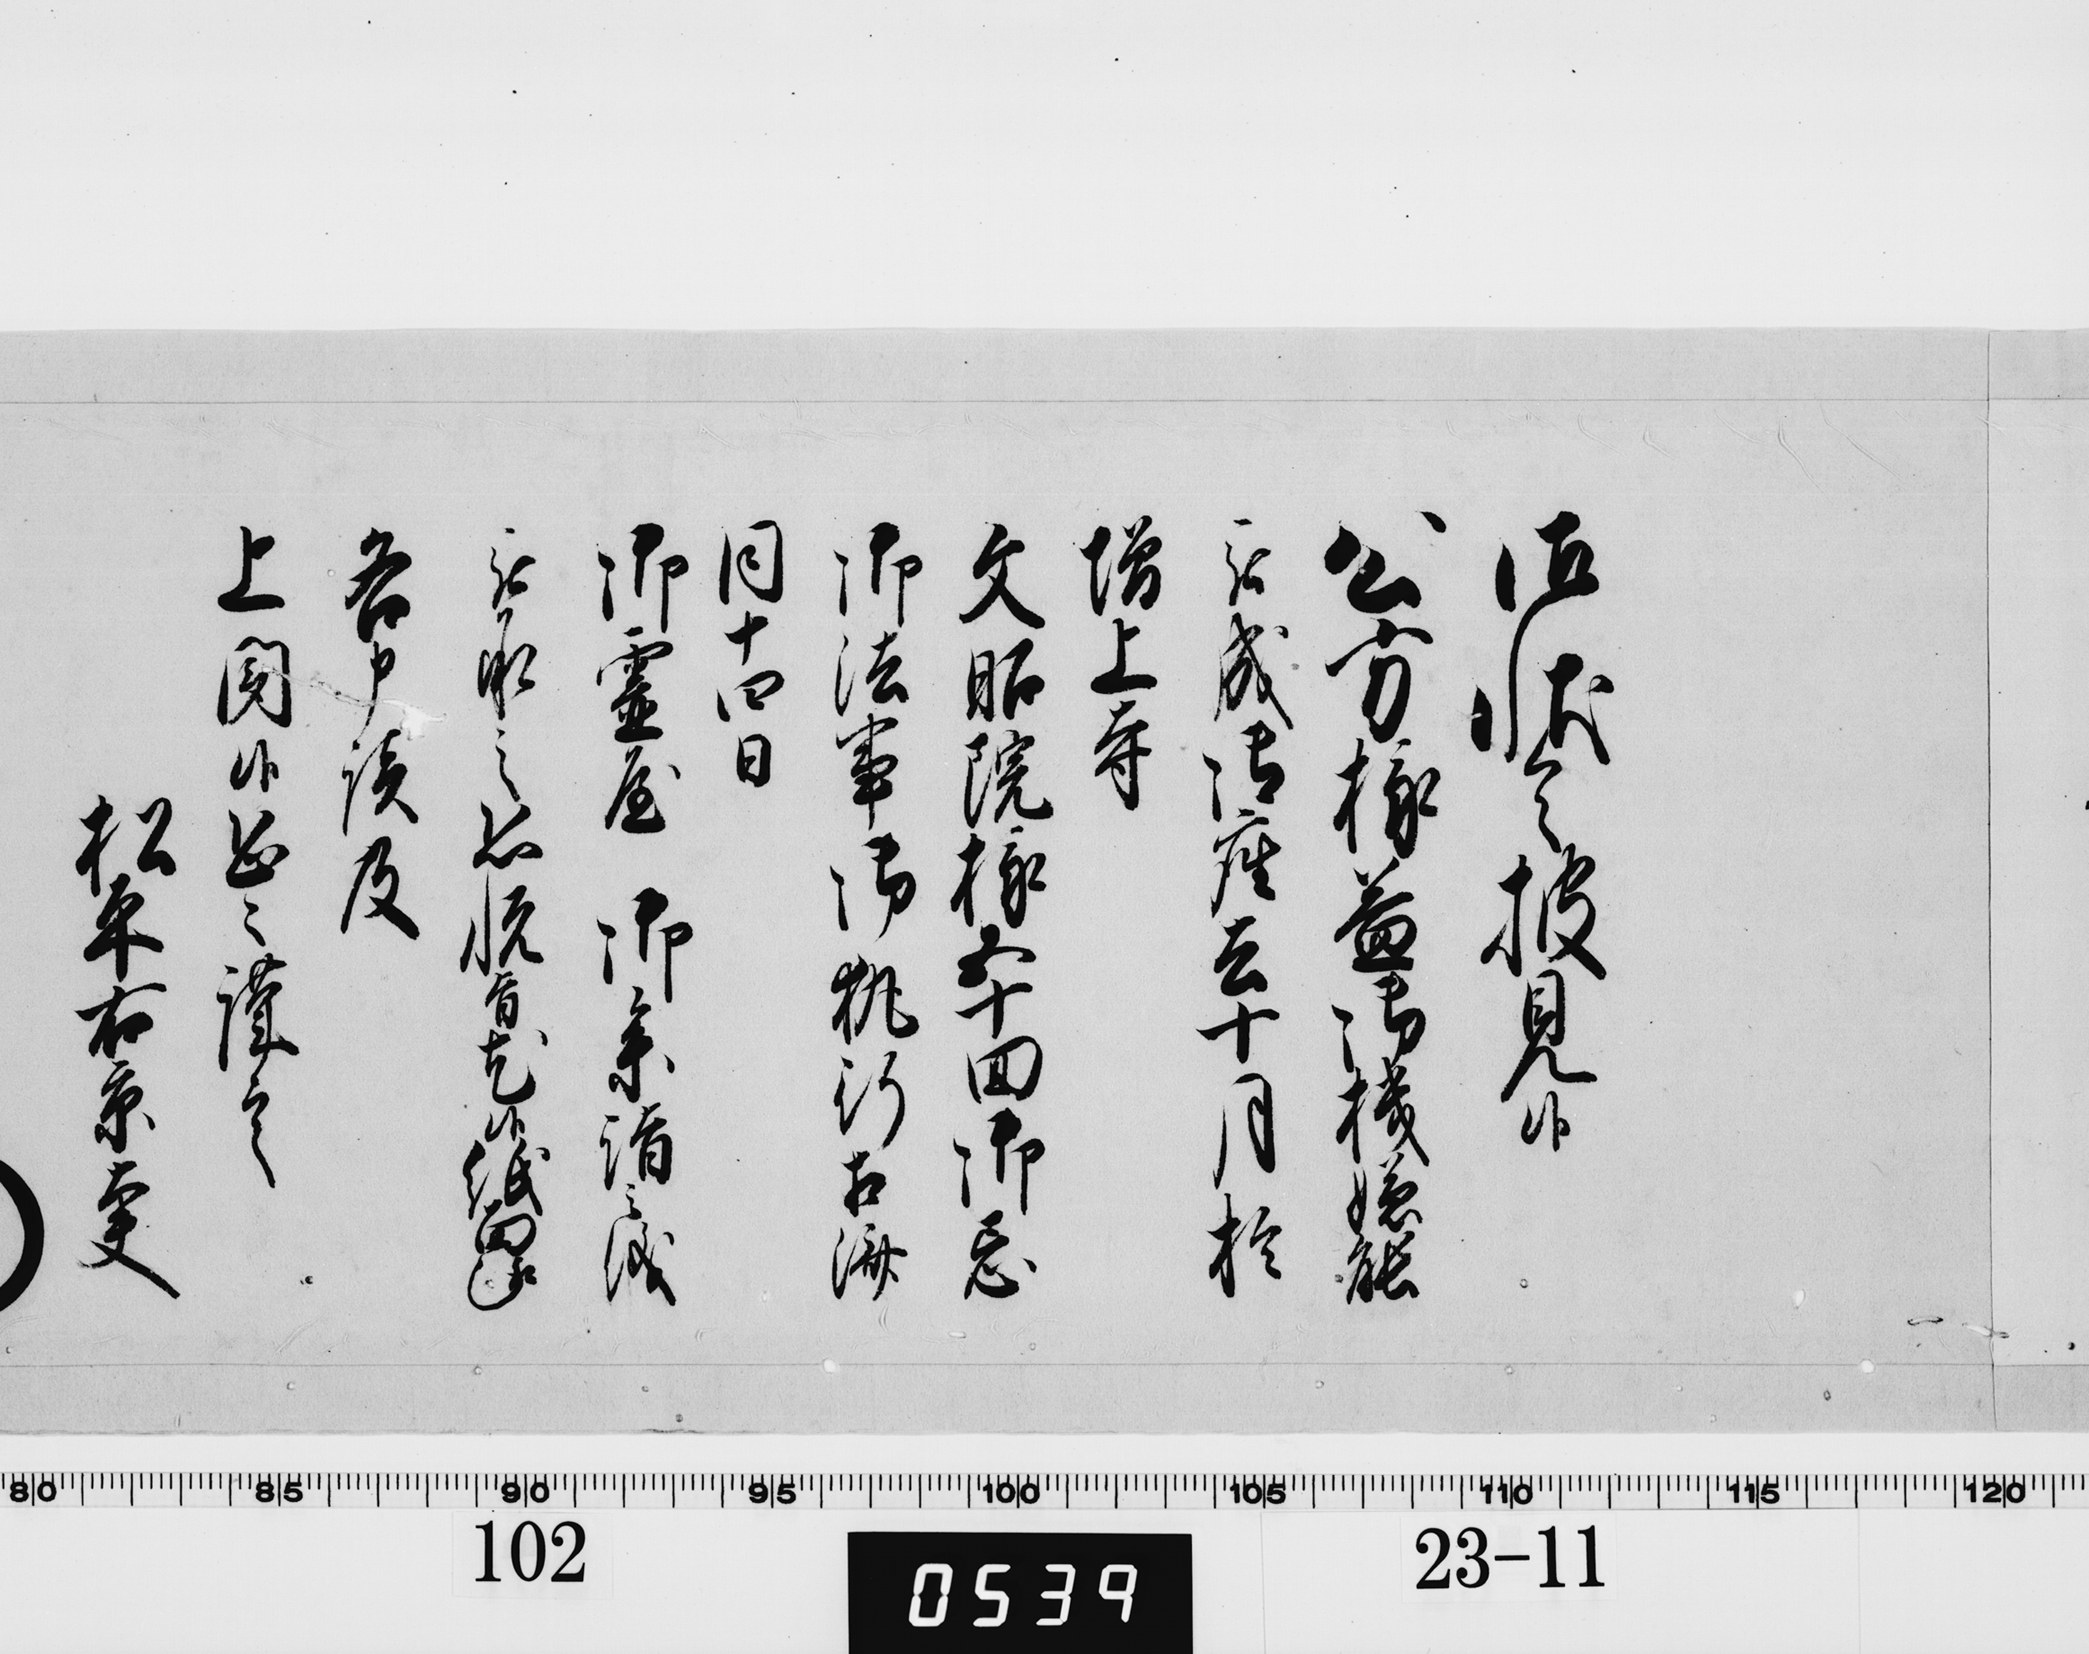 御状令披見候
公方様益御機嫌能
被成御座去十月於
増上寺
文昭院様五十回御忌
御法事御執行相済
同十四日
御霊屋 御参詣之儀
被承之恐悦旨尤候紙面之趣
各申談及
上聞候恐々謹言
松平右京大夫
80 85 90 95 100 105 110 115 120
102
0539
23-11